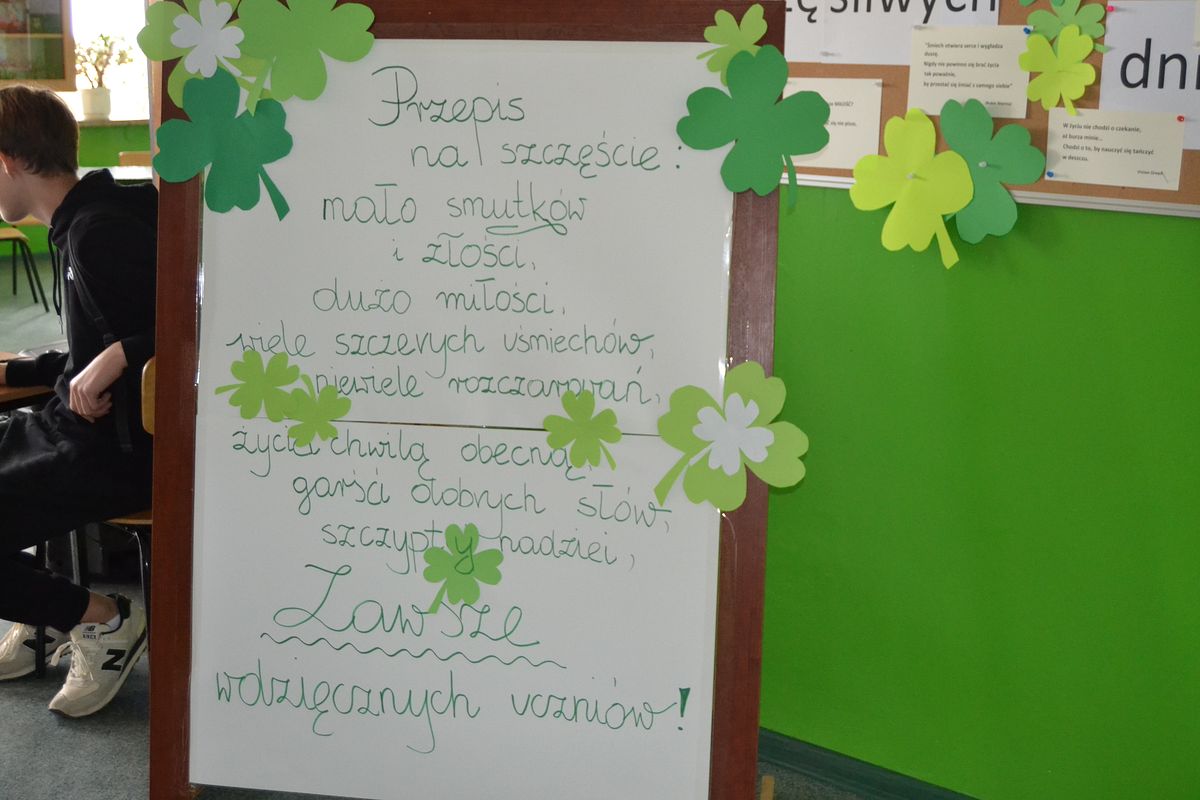 Przepis
na szczęście:
mało smutków
i złości,
dużo miłości,
wiele szczerych uśmiechów,
niewiele rozczarowań,
życia chwilą obecną,
garści dobrych słów,
szczypty nadziei,
Zawsze
wdzięcznych uczniów!
"Śmiech otwiera serce i wygładza
duszę.
Nigdy nie powinno się brać życia
tak poważnie,
by przestać się śmiać z samego siebie"
W życiu nie chodzi o czekanie,
aż burza minie...
Chodzi o to, by nauczyć się tańczyć
w deszczu.
Vivian Green
dni
N